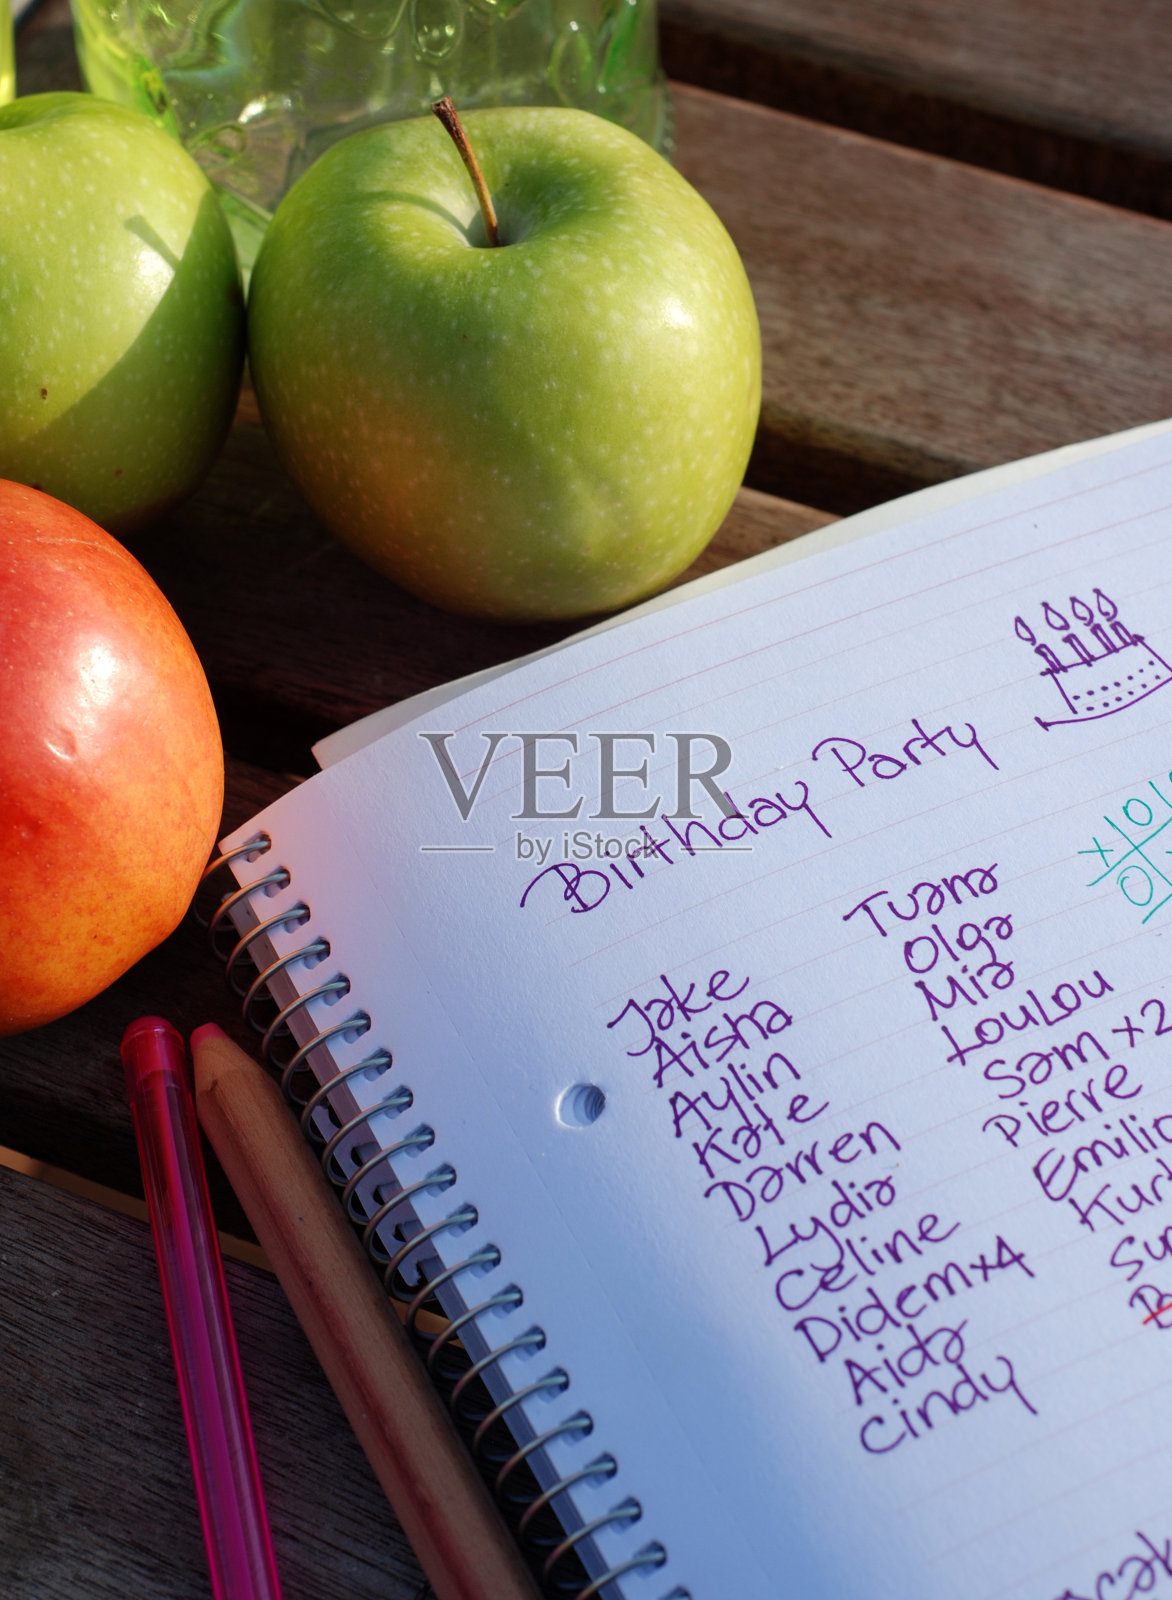 VEER
by iStock
Birthday Party
Jake
Aisha
Aylin
Kate
Darren
Lydia
Celine
Didem x4
Aida
Cindy
Tuana
Olga
Mia
LouLou
Sam x2
Pierre
X O
O